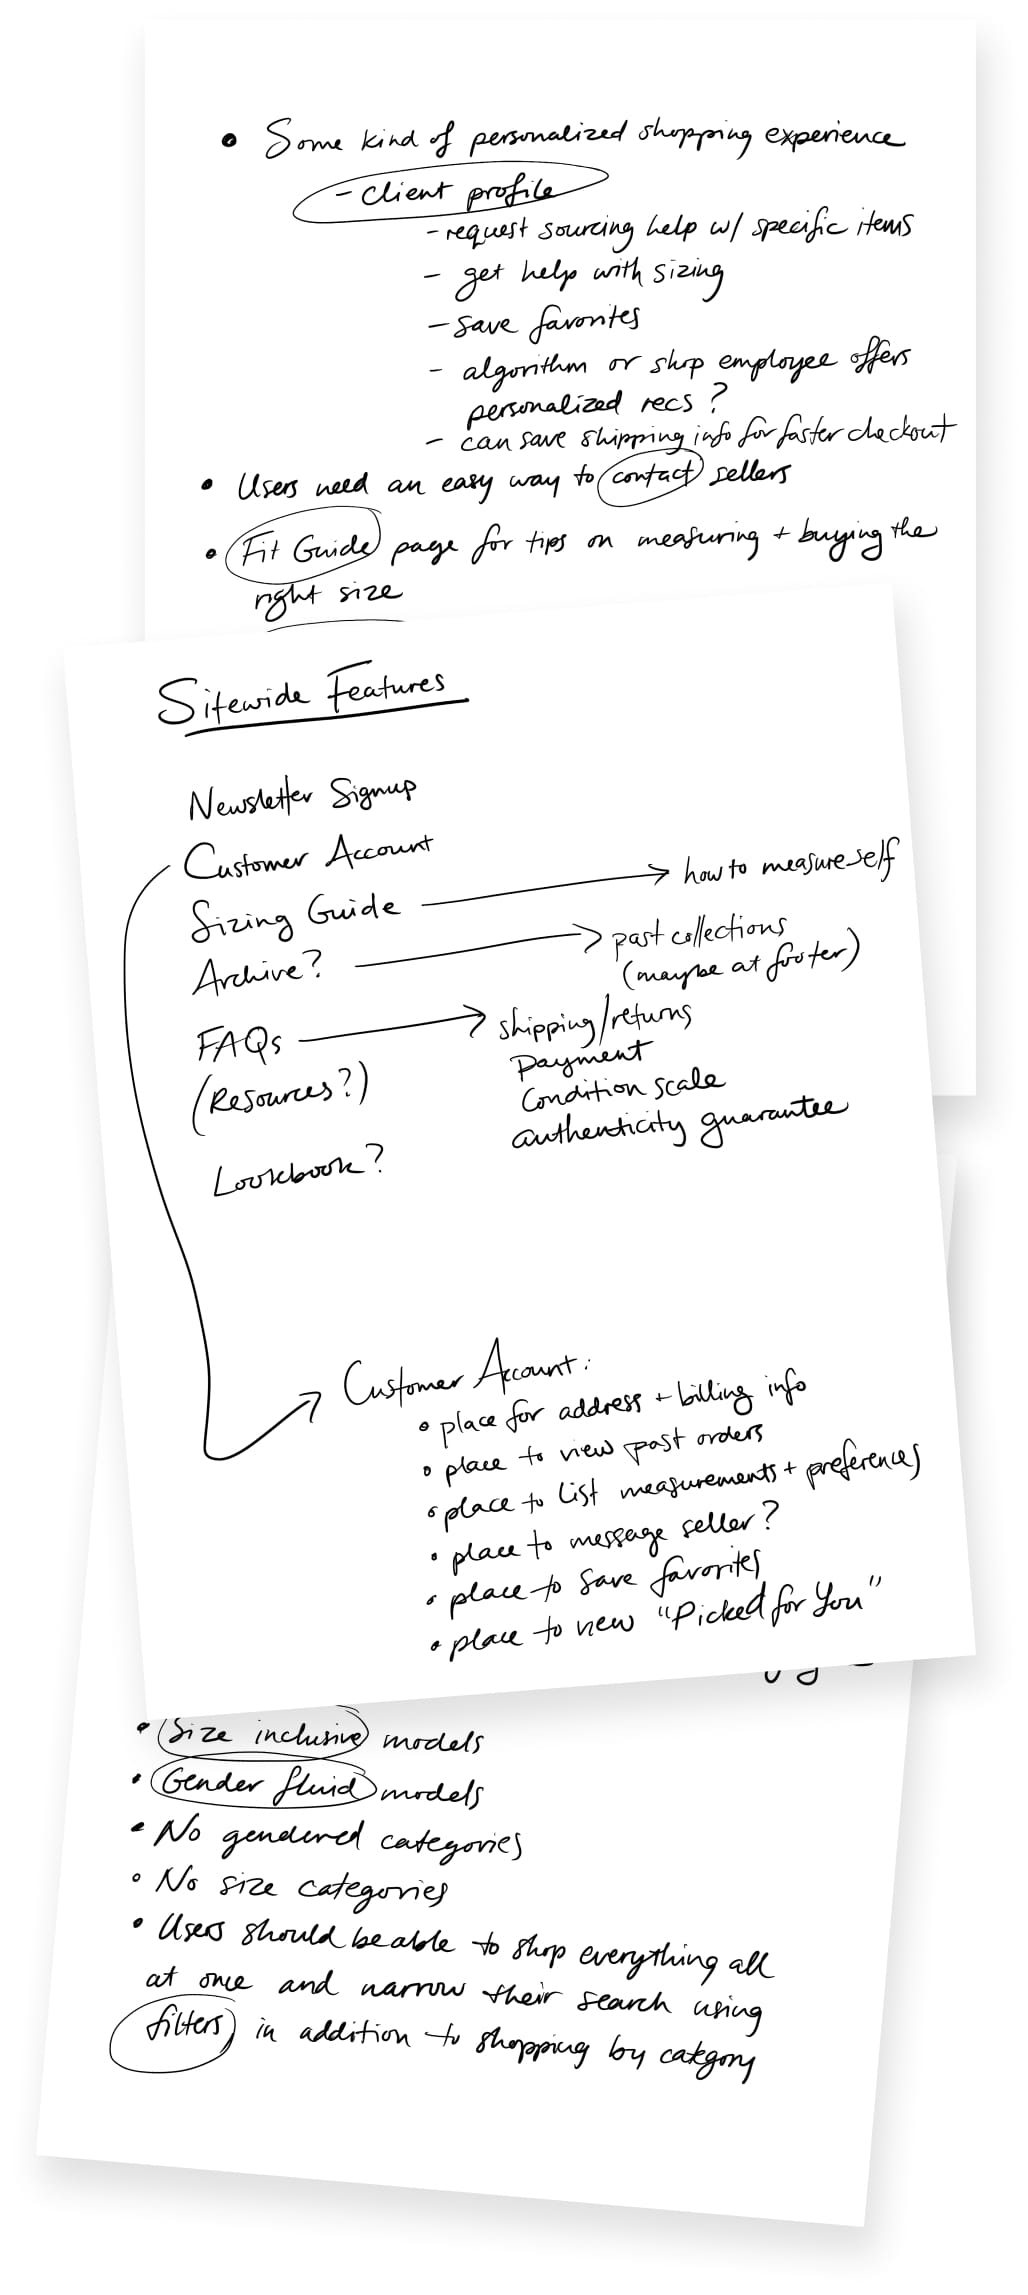 • Some kind of personalized shopping experience
- client profile
- request sourcing help w/ specific items
- get help with sizing
- save favorites
- algorithm or shop employee offers
personalized recs?
- can save shipping info for faster checkout
• Users need an easy way to contact sellers
• Fit Guide page for tips on measuring + buying the
right size
Sitewide Features
Newsletter Signup
Customer Account
Sizing Guide → how to measure self
Archive? → past collections
(maybe at footer)
FAQs → shipping/returns
(Resources?) payment
condition scale
authenticity guarantee
Lookbook?
→ Customer Account:
• place for address + billing info
• place to view past orders
• place to list measurements + preferences
• place to message seller?
• place to save favorites
• place to view "Picked for You"
• Size inclusive models
• Gender fluid models
• No gendered categories
• No size categories
• Users should be able to shop everything all
at once and narrow their search using
filters in addition to shopping by category